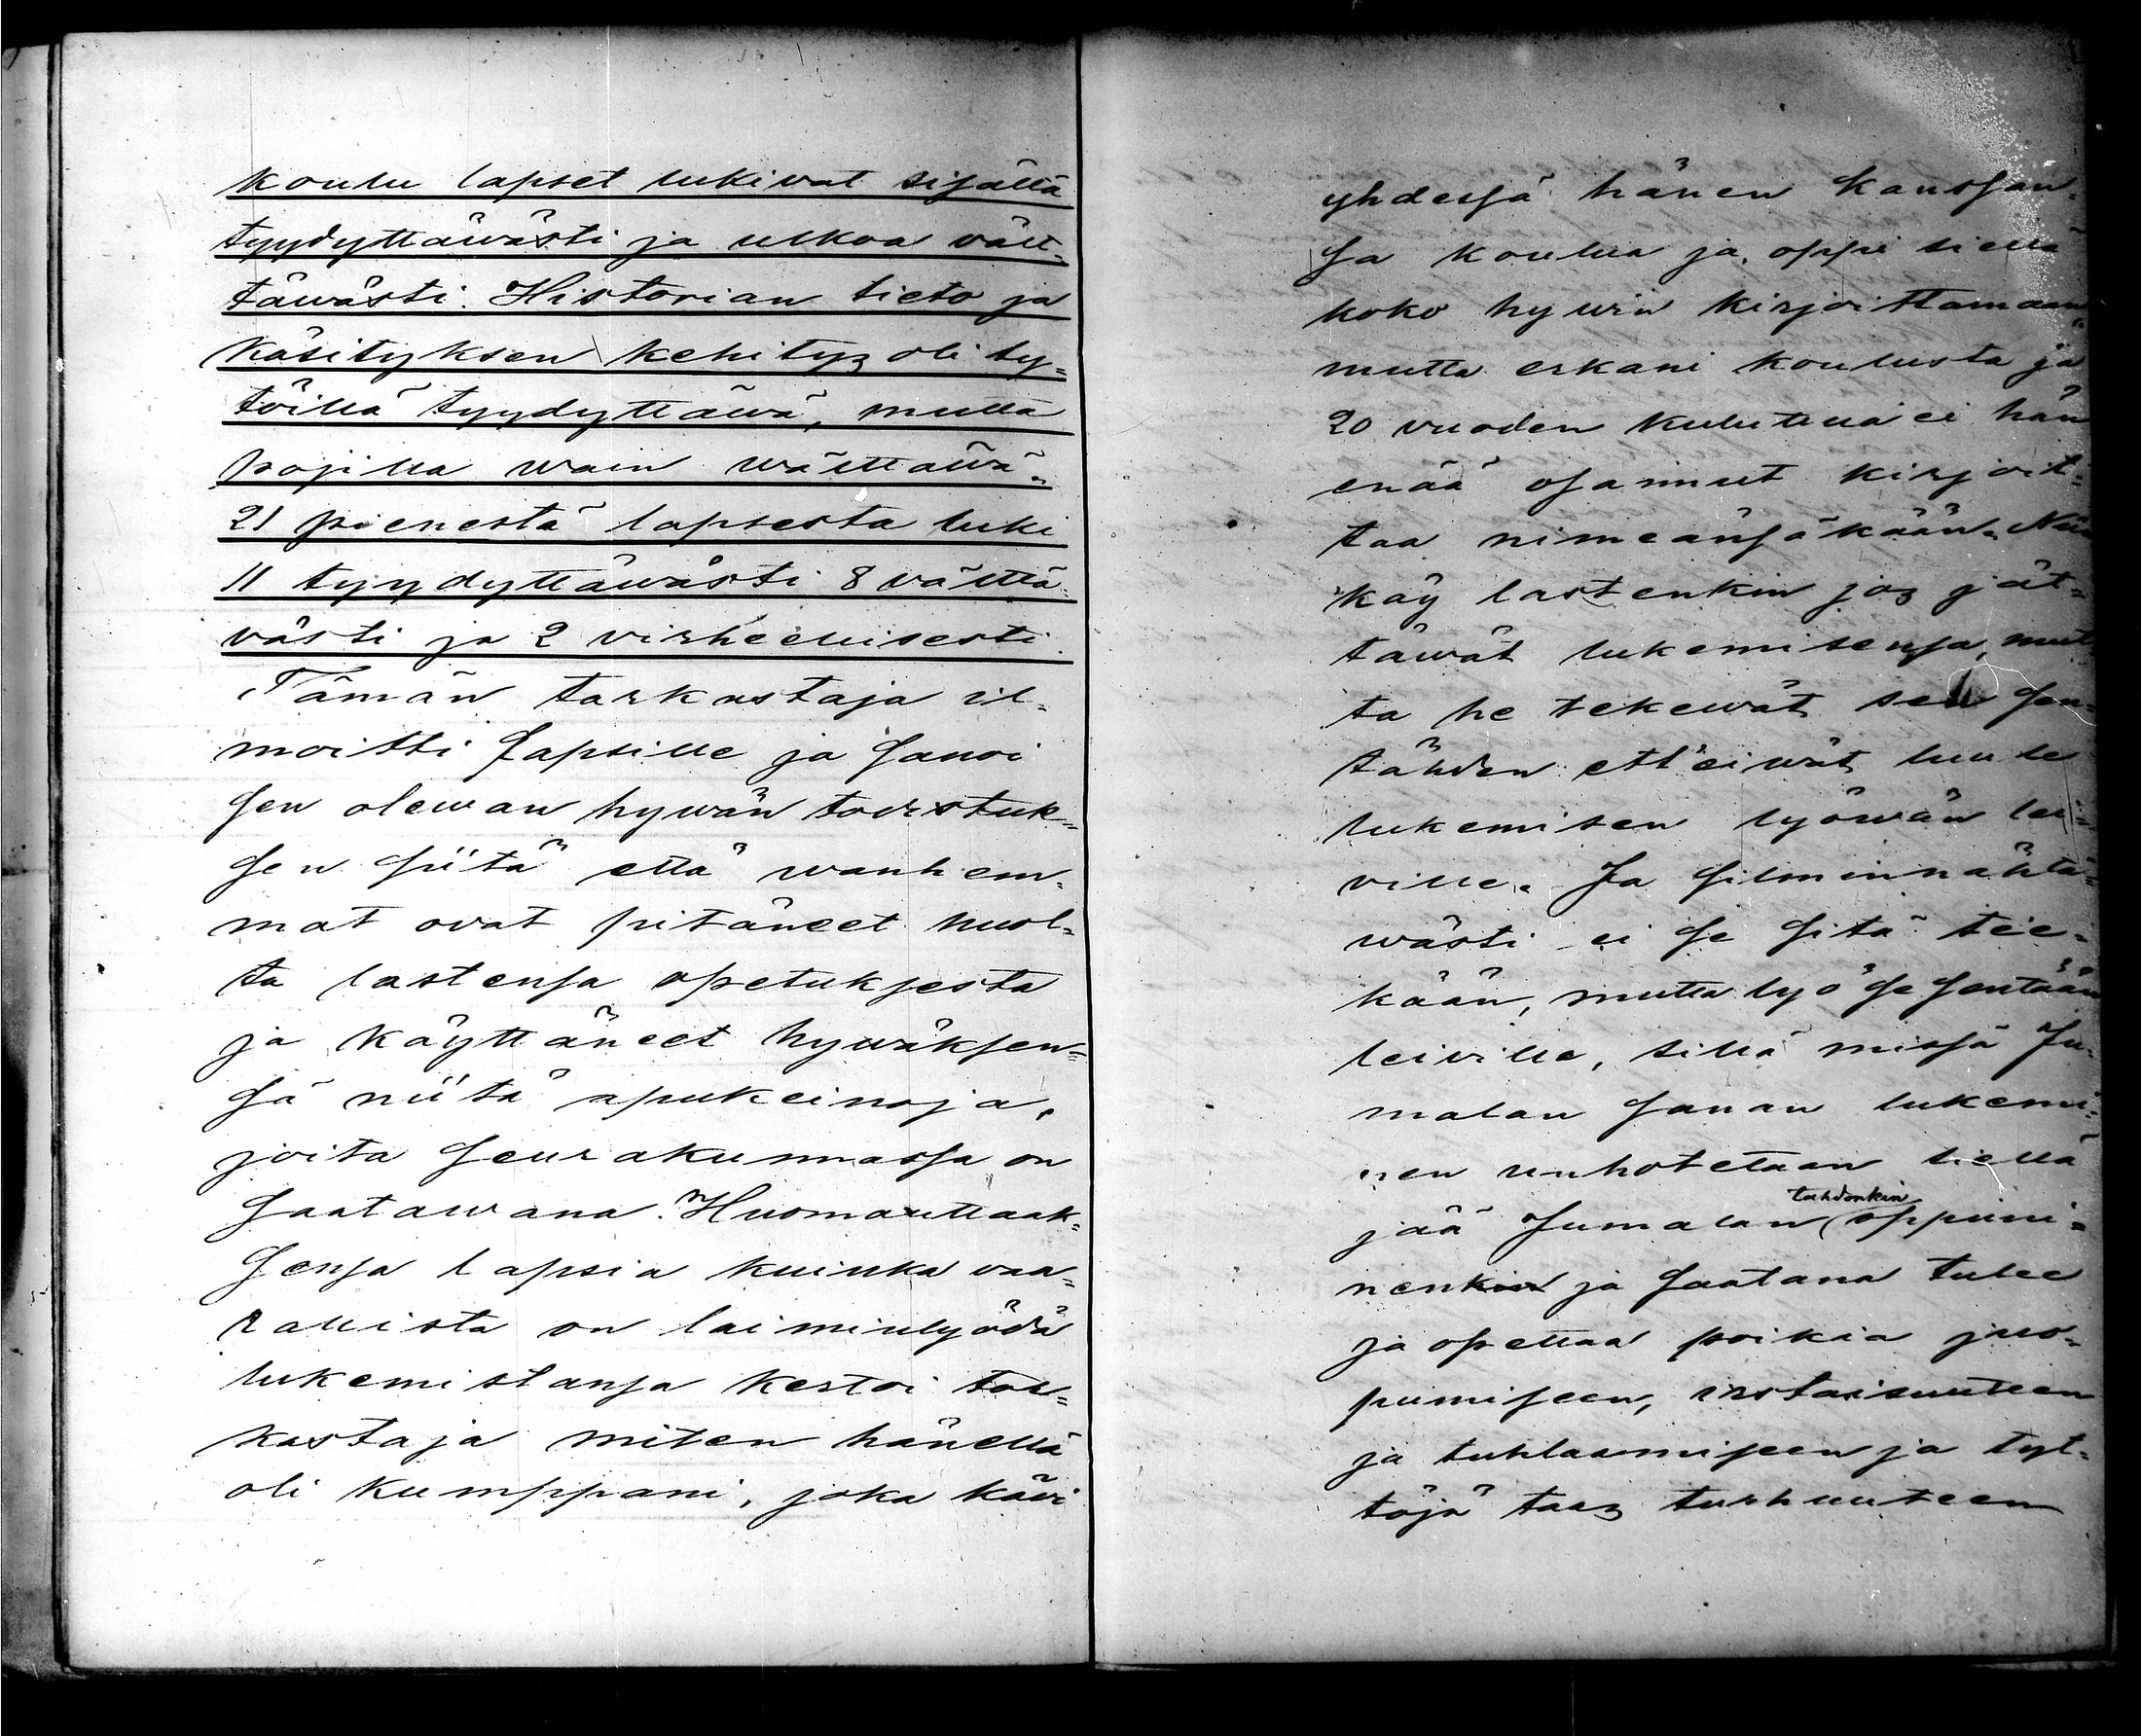 koulu lapset lukivat sisältä
tyydyttäwästi ja ulkoa vält-
täwästi. Historian tieto ja
käsityksen kehitys oli ty-
töillä tyydyttäwä, mutta
pojilla wain wälttäwä.
21 pienestä lapsesta luki
11 tyydyttäwästi 8 välttä-
västi ja 2 virheellisesti.
Tämän tarkastaja il-
moitti lapsille ja sanoi
sen olewan hywän toistuk-
sen siitä että wanhem-
mat ovat pitäneet huol-
ta lastensa opetuksesta
ja käyttäneet hywäksen-
sä niitä apukeinoja,
joita seurakunnassa on
saatawana. Huomauttaak-
sensa lapsia kuinka vaa-
rallista on laiminlyödä
lukemistansa kertoi tar-
kastaja miten hänellä
oli kumppani, joka kävi
yhdessä hänen kanssan-
sa koulua ja oppi siellä
koko hywin kirjoittamaan,
mutta erkani koulusta ja
20 vuoden kuluttua ei hän
enää osannut kirjoit-
taa nimeänsäkään. Niin
käy lastenkin jos jät-
täwät lukemisensa, mut
ta he tekewät sen sen-
tähden ett'eiwät luule
lukemisen lyöwän lei-
ville. Ja silminnähtä-
wästi ei se sitä tee-
kään, mutta lyö se sentään
leiville, sillä missä Ju-
malan sanan lukemi-
nen unhotetaan siellä
jää Jumalan tahdonkin oppimi-
nenkin ja saatana tulee
ja opettaa poikia juo-
pumiseen, irstaisuuteen
ja tuhlaamiseen ja tyt-
töjä taas turhuuteen